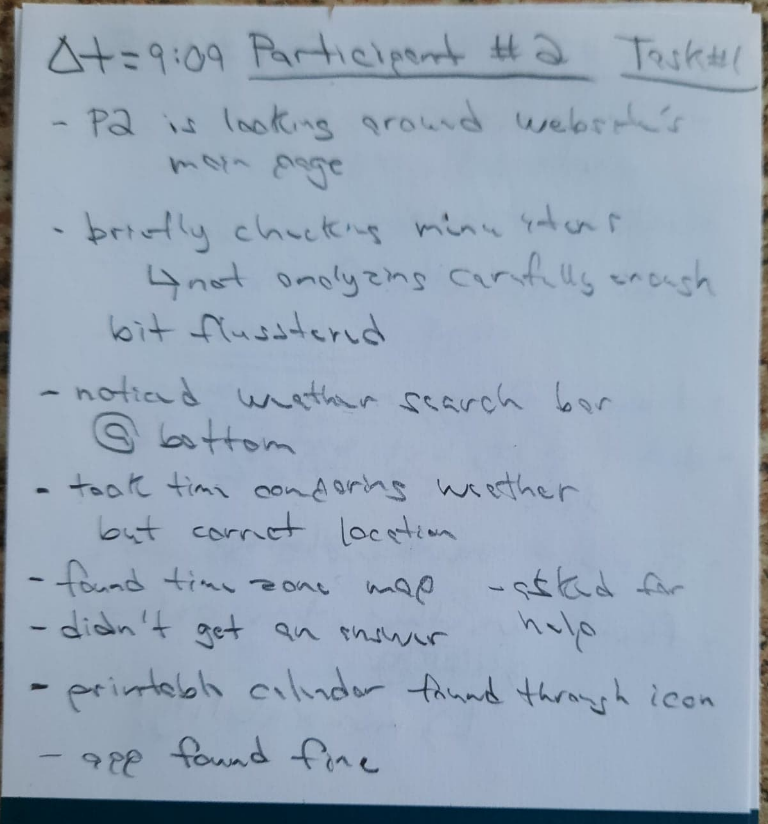 Δt=9:09 Participant #2 Task#1
- P2 is looking around website's
main page
- briefly checking menu items
↳not analyzing carefully enough
bit flusstered
- noticed weather search bar
@ bottom
- took time comparing weather
but correct location
- found time zone map - asked for
help
- didn't get an answer
- printable calendar found through icon
- app found fine